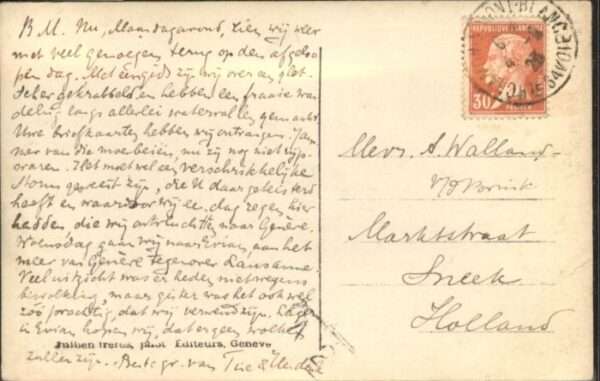 B.M. Nu, Maandagavond, zien wij weer
met veel genoegen terug op den afgeloo-
pen dag. Met ein gids zijn wij over an
en hebben een fraaie wan-
deling langs allerlei watervallen gemaakt.
Uwe briefkaarten hebben wij ontvangen. Jam-
mer van die moerbeien, nu zij nog niet rijp
waren. Het moet wel een verschrikkelijke
storm geweest zijn, die U daar geteisterd
heeft en waardoor wij een dag regen hier
hadden, die wij ontvluchtten, naar Genève.
Woensdag gaan wij naar Evian, aan het
meer van Genève tegenover Lausanne.
Veel uitzicht was er heden niet wegens
bewolking, maar gister was het ook wel
zóó prachtig, dat wij verwend zijn.
Evian hopen wij, dat er geen wolken
zullen zijn. Beste gr. van
Jullien frères, phot. Editeurs, Genève
MONT-BLANC
SAVOIE
30
Mevr. A. Walland-
v/d Brink
Marktstraat
Sneek
Holland